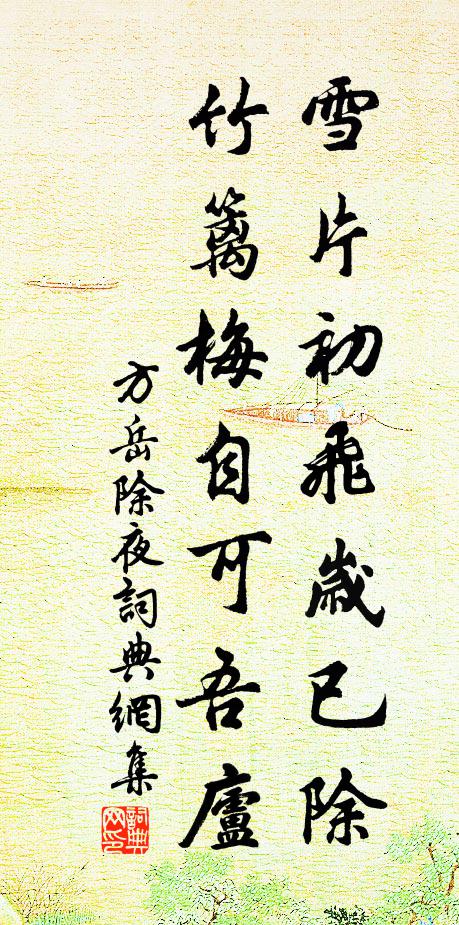 雪片初飛歲已除
竹籬梅自可吾廬
方岳除夜詞典網集
詞典
网印